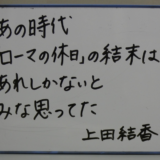 あの時代
「ローマの休日」の結末は
あれしかないと
みな思ってた
上田結香